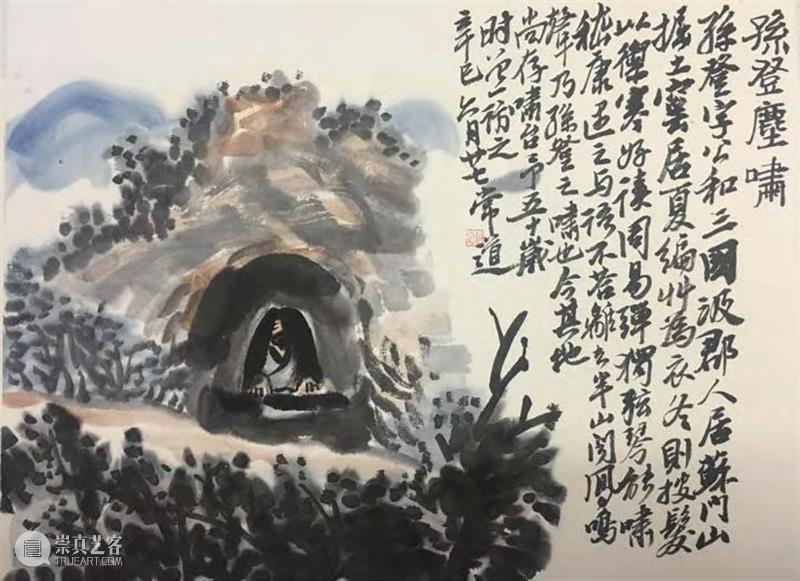 孫登塵嘯
孫登字公和三國汲郡人居蘇門山
掘土窰居夏編艸為衣冬則披髮
以禦寒好读周易彈獨弦琴能嘯
嵇康遇之与语不答離去半山闻鳳鳴
聲乃孫登之嘯也今其地
尚存嘯台予五十歲
时曾一訪之
辛巳六月廿七常道
崇真艺客
TRUEART.COM